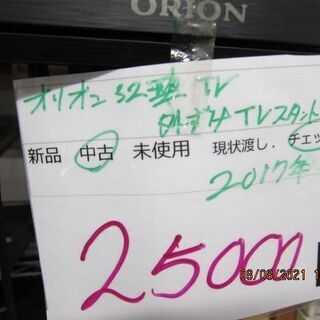 ORION
オリオン 32型 TV
TVスタンド
新品 中古 未使用 現状渡し. チェッ
2017年
25000
08/08/2021 1